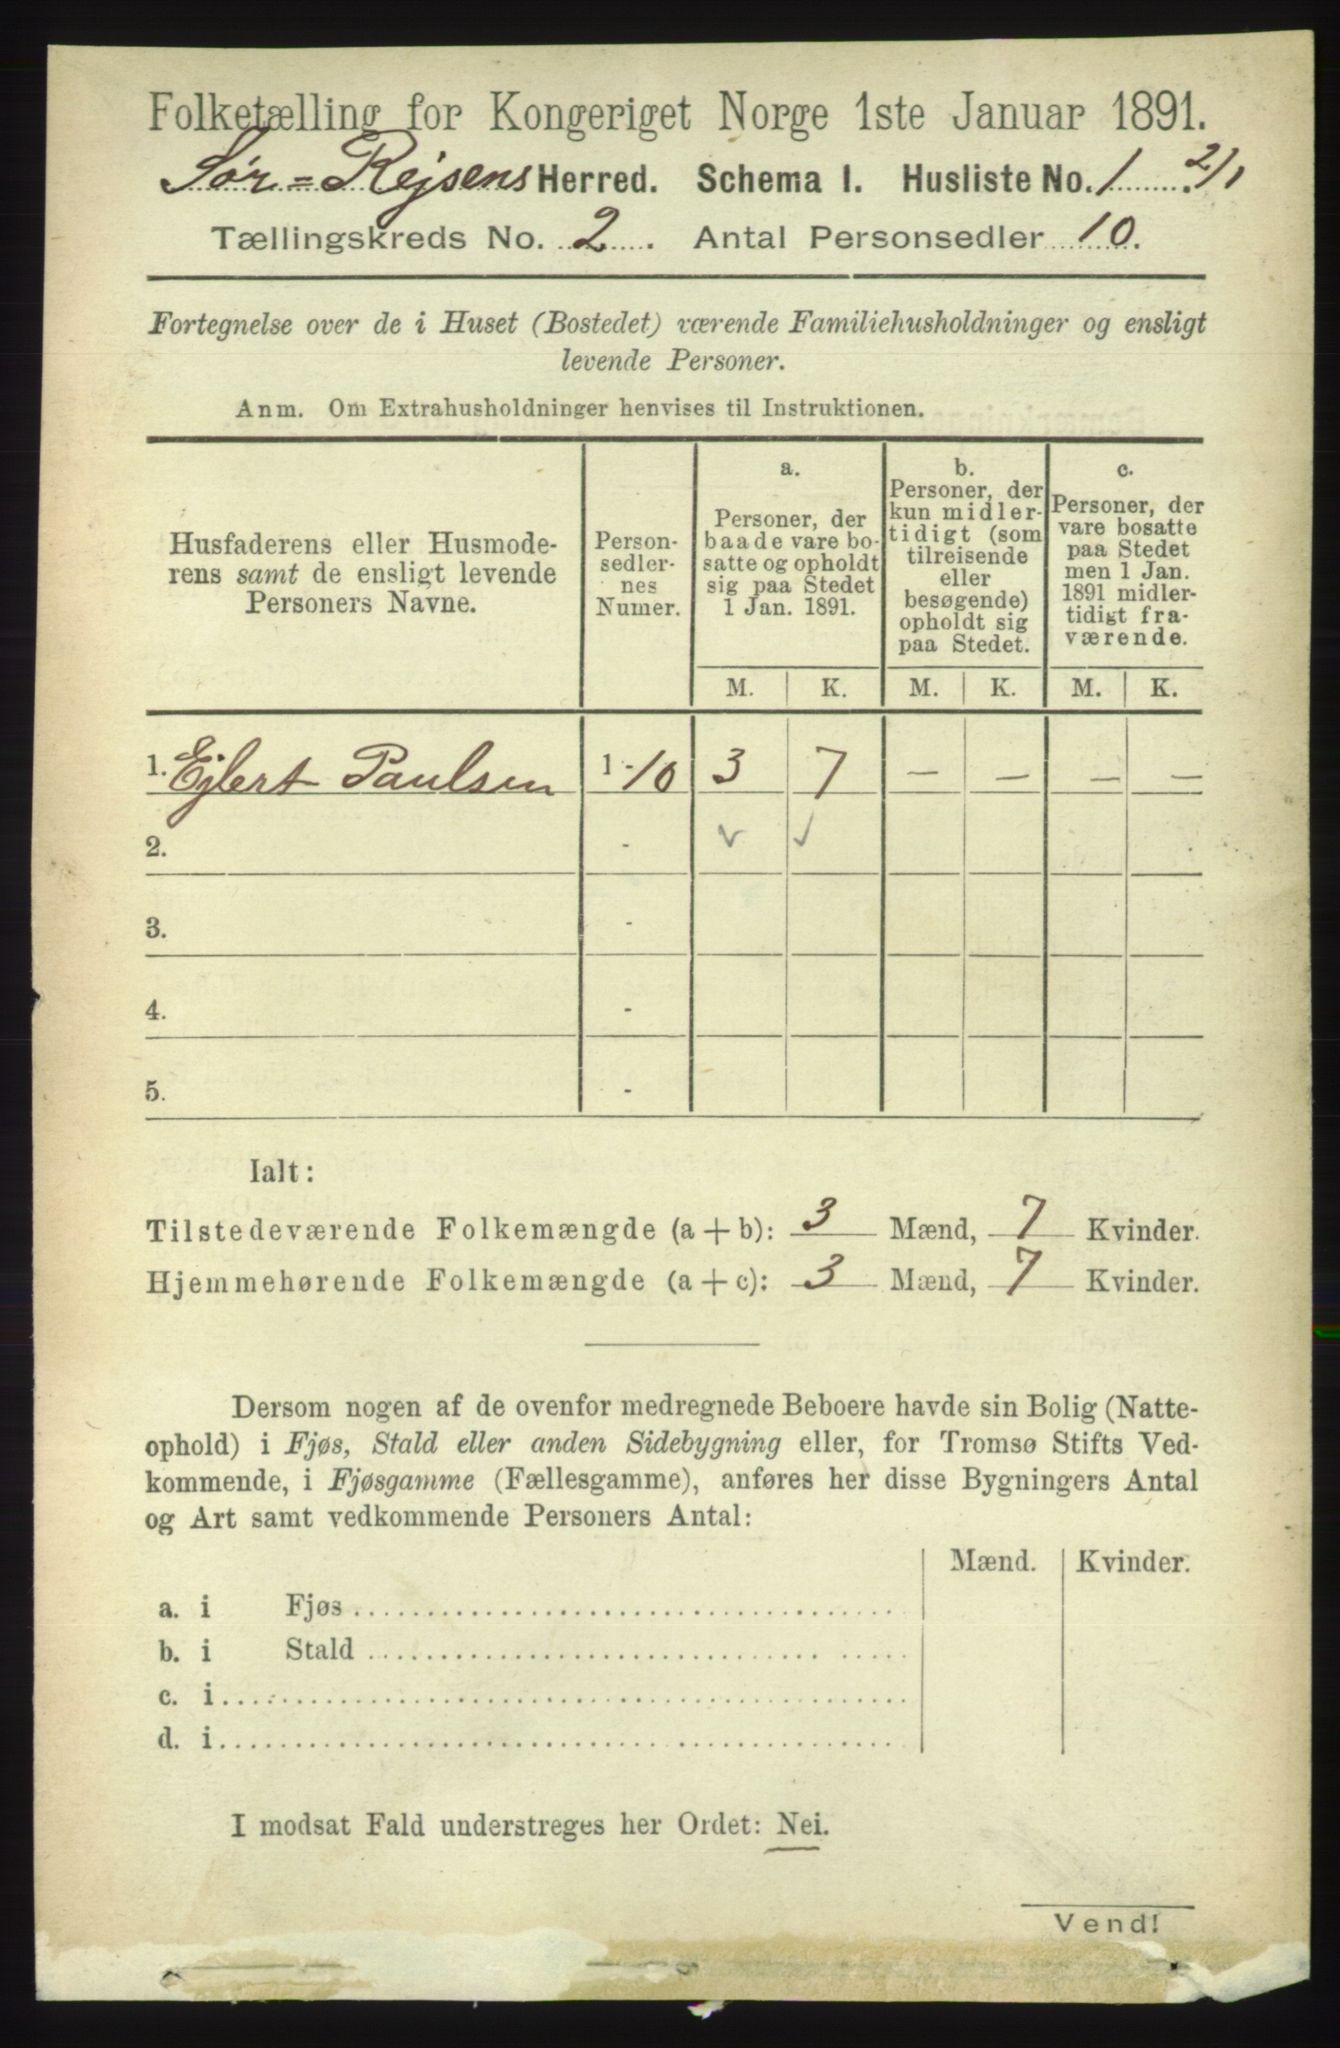 Folketælling for Kongeriget Norge 1ste Januar 1891.
Sør-Rejsens Herred. Schema I. Husliste No. 1 2/1
Tællingskreds No. 2. Antal Personsedler 10.
Fortegnelse over de i Huset (Bostedet) værende Familiehusholdninger og ensligt
levende Personer.
Anm. Om Extrahusholdninger henvises til Instruktionen.
Husfaderens eller Husmode-
rens samt de ensligt levende
Personers Navne.
Person-
sedler-
nes
Numer.
a.
Personer, der
baade vare bo-
satte og opholdt
sig paa Stedet
1 Jan. 1891.
b.
Personer, der
kun midler-
tidigt (som
tilreisende
eller
besøgende)
opholdt sig
paa Stedet.
c.
Personer, der
vare bosatte
paa Stedet
men 1 Jan.
1891 midler-
tidigt fra-
værende.
M. K. M. K. M. K.
1. Ejlert Paulsen 1-10 3 7 — — — —
2. - ✓ ✓
3. -
4. -
5. -
Ialt:
Tilstedeværende Folkemængde (a+b): 3 Mænd, 7 Kvinder.
Hjemmehørende Folkemængde (a+c): 3 Mænd, 7 Kvinder.
Dersom nogen af de ovenfor medregnede Beboere havde sin Bolig (Natte-
ophold) i Fjøs, Stald eller anden Sidebygning eller, for Tromsø Stifts Ved-
kommende, i Fjøsgamme (Fællesgamme), anføres her disse Bygningers Antal
og Art samt vedkommende Personers Antal:
Mænd. Kvinder.
a. i Fjøs
b. i Stald
c. i
d. i
I modsat Fald understreges her Ordet: Nei.
Vend!